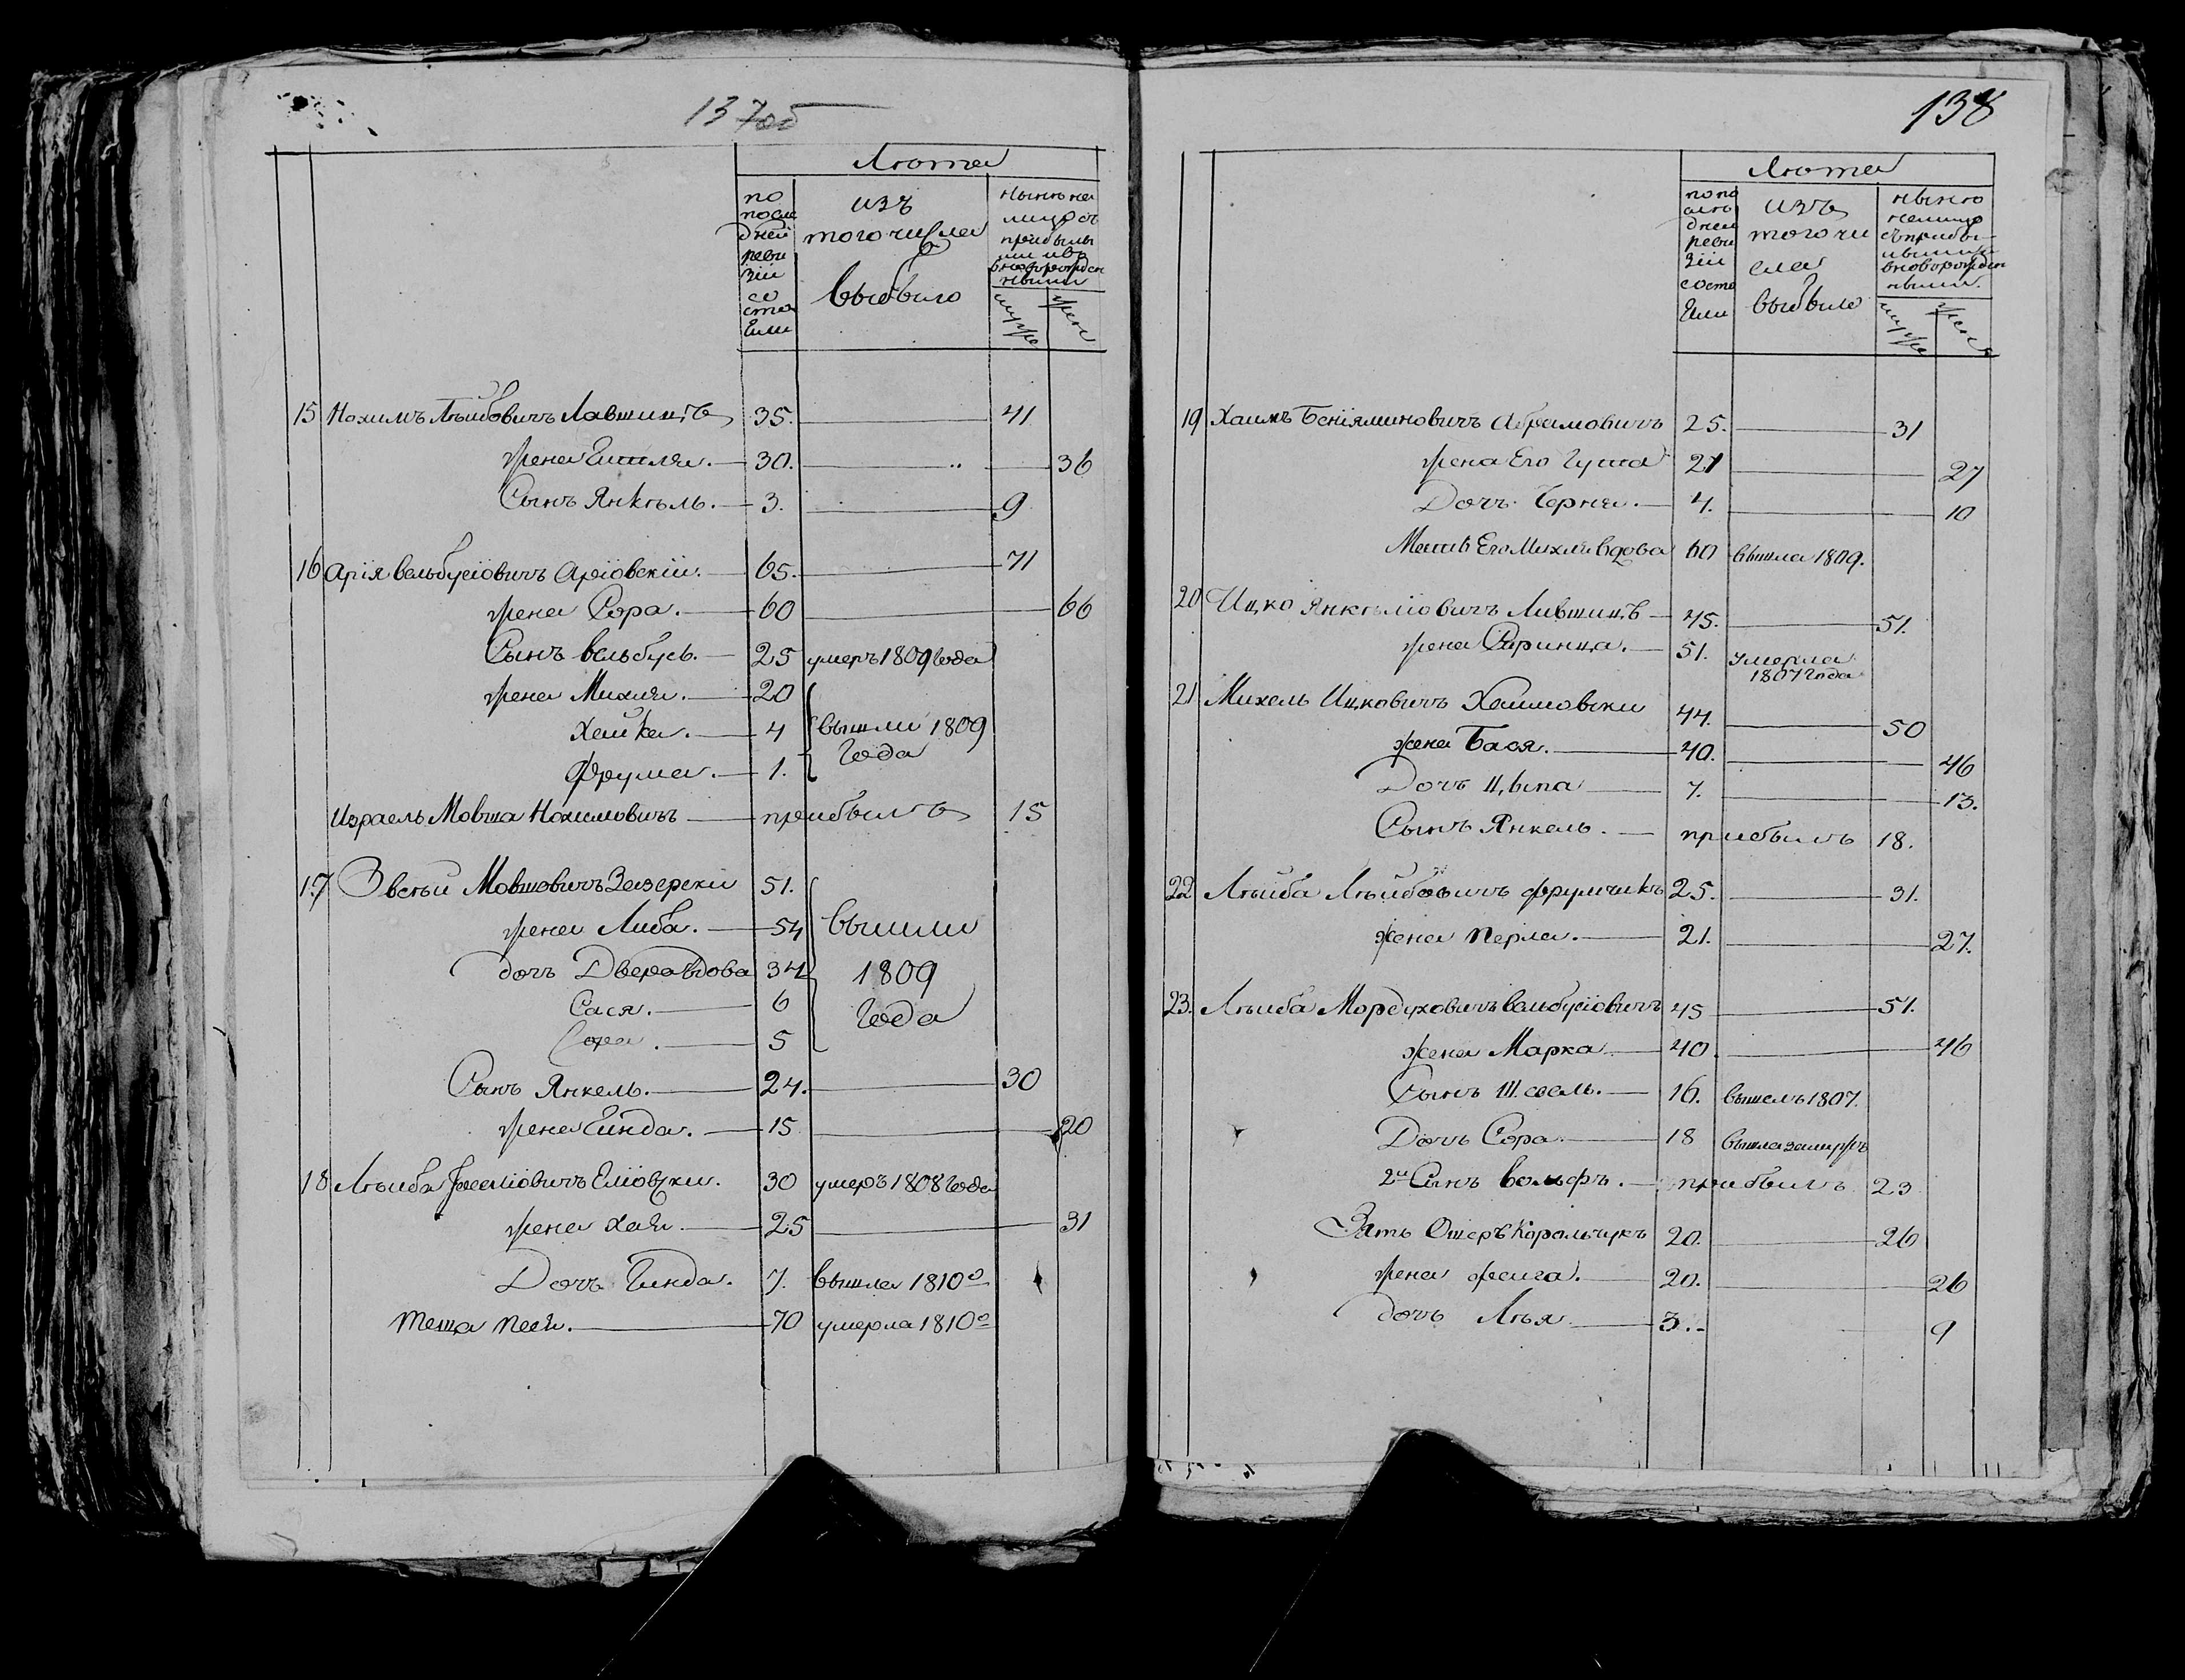 137об
Лѣта
по после дней реви зіи со сто яли
изъ того числа выбыло
нынѣ на лицо съ прибылы ми и въ новорожден ными
муж
жен
15 Нохимъ Лѣйбовичъ Лавшицъ 35. 41
жена 30. 36
Сынъ Янкѣль. 3. 9
16 Арія Вельбусіовичъ Аріовскій. 65. 71
жена Сора. 60 66
Сынъ Вельбусь. 25 умеръ 1809 года
жена Михля. 20
Хайка. 4 вышли 1809 года
Фрума. 1.
Израель Мовша Нохимовичъ прибылъ 15
17 Эвсѣй Мовшовичъ Зазерски 51.
жена Либа. 54 вышли
дочь Двера вдова 34 1809
Сася. 6 года
Сора. 5
Сынъ Янкель. 24. 30
жена Гинда. 15 20
18 Лѣиба Еліовски. 30 умеръ 1808 года
жена Хая. 25 31
Дочь Гинда. 7. вышла 1810го
теща Песя. 70 умерла 1810го
138
Лѣта
по по слѣ дней реви зіи состо яли
изъ того чи сла выбыло
нынѣ налицо съ прибы лыми и въ новорожден ными.
муж
женс
19 Хаимъ Беніяминовичъ Абрамовичъ 25. 31
жена Его Гута 21 27
Дочь Черня. 4. 10
Мать Его Михля вдова 60 вышла 1809.
20 Ицко Янкѣліовичъ Лившицъ 45. 51.
жена Сприница. 51. умерла 1807 года
21 Михель Ицковичъ Хаимовски 44. 50
жена Бася. 40. 46
Дочь Цыпа 7. 13.
Сынъ Янкель. прибылъ 18.
22 Лѣйба Лѣйбовичъ Фрумчикъ 25. 31.
жена Перла. 21. 27.
23. Лѣиба Мордуховичъ Вольбусіовичъ 45 51.
жена Марка 40. 46
Сынъ 16. вышелъ 1807.
Дочь Сора. 18 вышла замужъ
2й Сынъ Вольфъ. прибылъ 23
Зять Ошеръ Корольчукъ 20. 26
жена Фейга. 20. 26
дочь Лѣя 3. 9